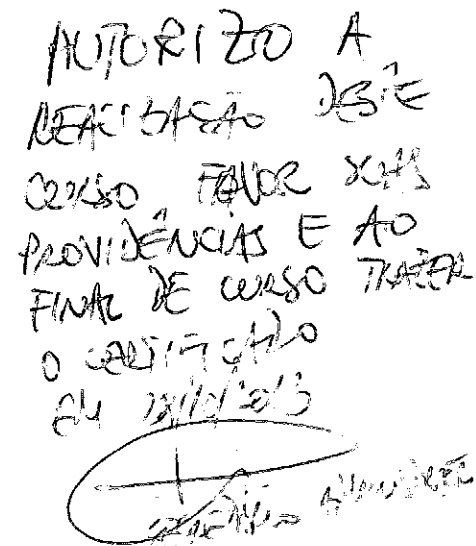 AUTORIZO A
REALIZAÇÃO DESTE
CURSO FAVOR
PROVIDÊNCIAS E AO
FINAL DE CURSO TRAZER
O CERTIFICADO
EM